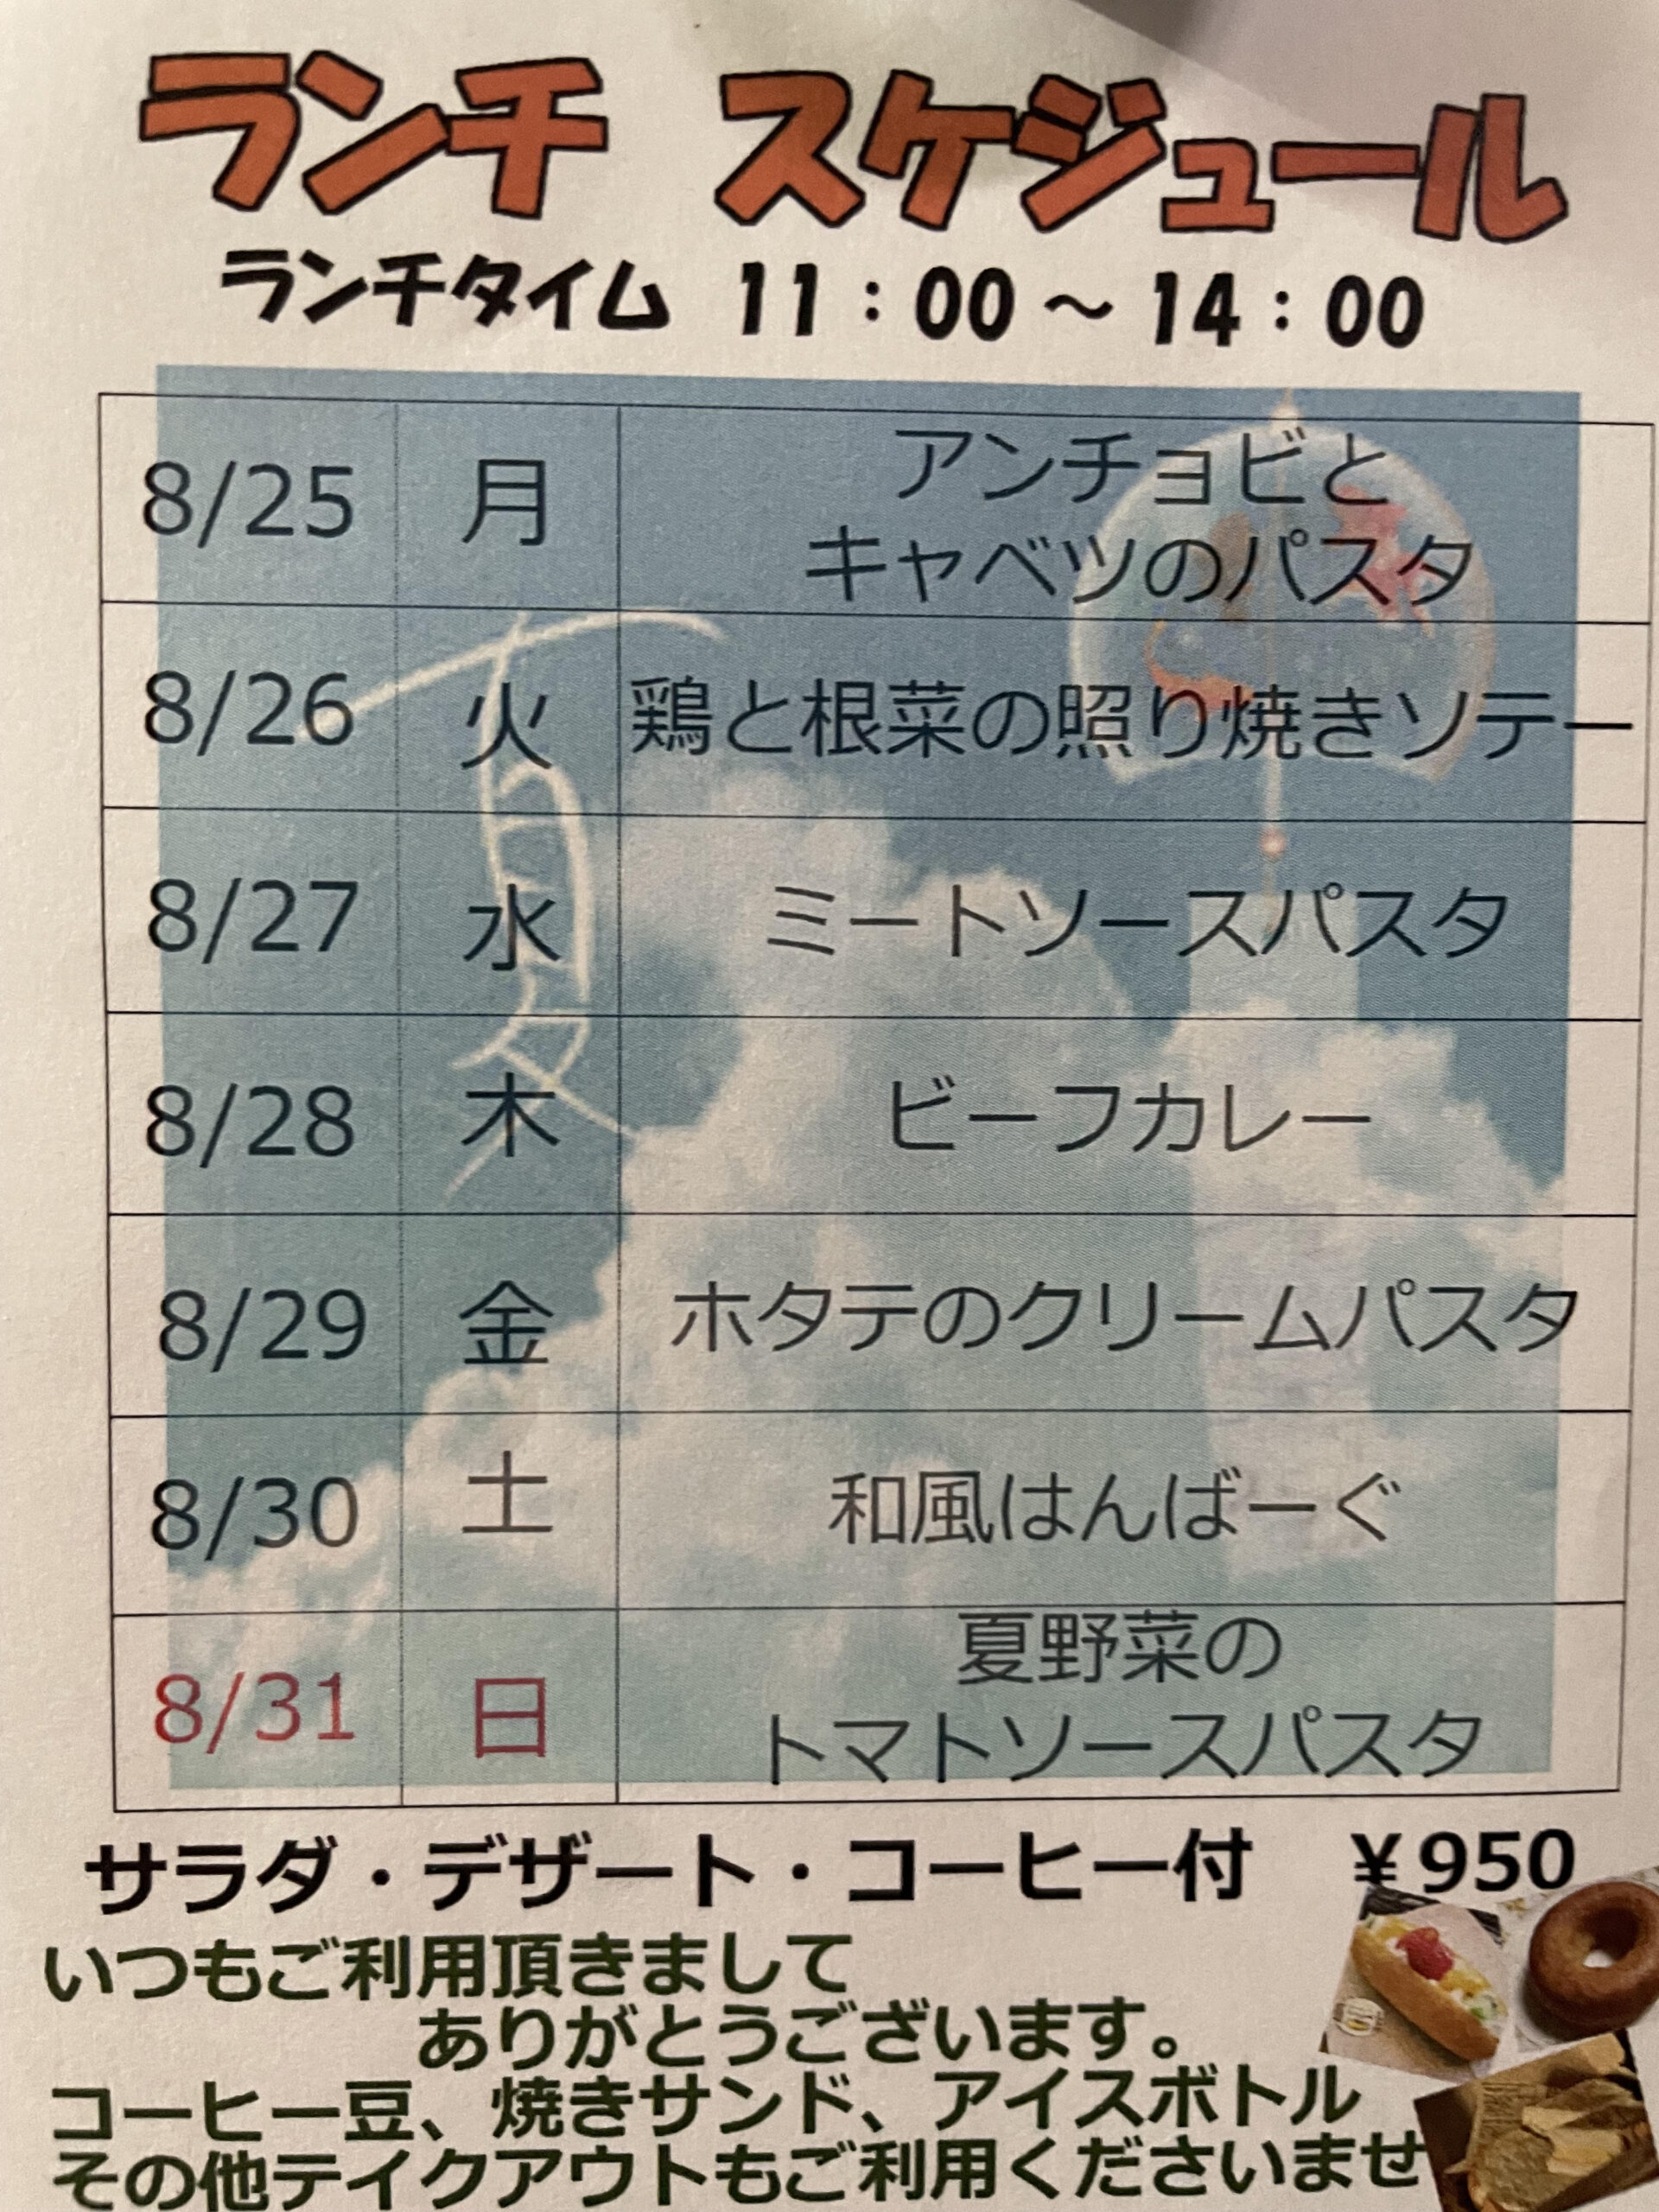 ランチ スケジュール
ランチタイム 11：00～14：00
8/25 月 アンチョビと
キャベツのパスタ
8/26 火 鶏と根菜の照り焼きソテー
8/27 水 ミートソースパスタ
8/28 木 ビーフカレー
8/29 金 ホタテのクリームパスタ
8/30 土 和風はんばーぐ
8/31 日 夏野菜の
トマトソースパスタ
夏
サラダ・デザート・コーヒー付 ￥950
いつもご利用頂きまして
ありがとうございます。
コーヒー豆、焼きサンド、アイスボトル
その他テイクアウトもご利用くださいませ